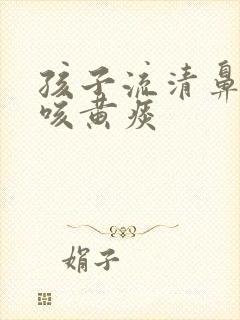 孩子流清鼻
咳黄痰
娟子